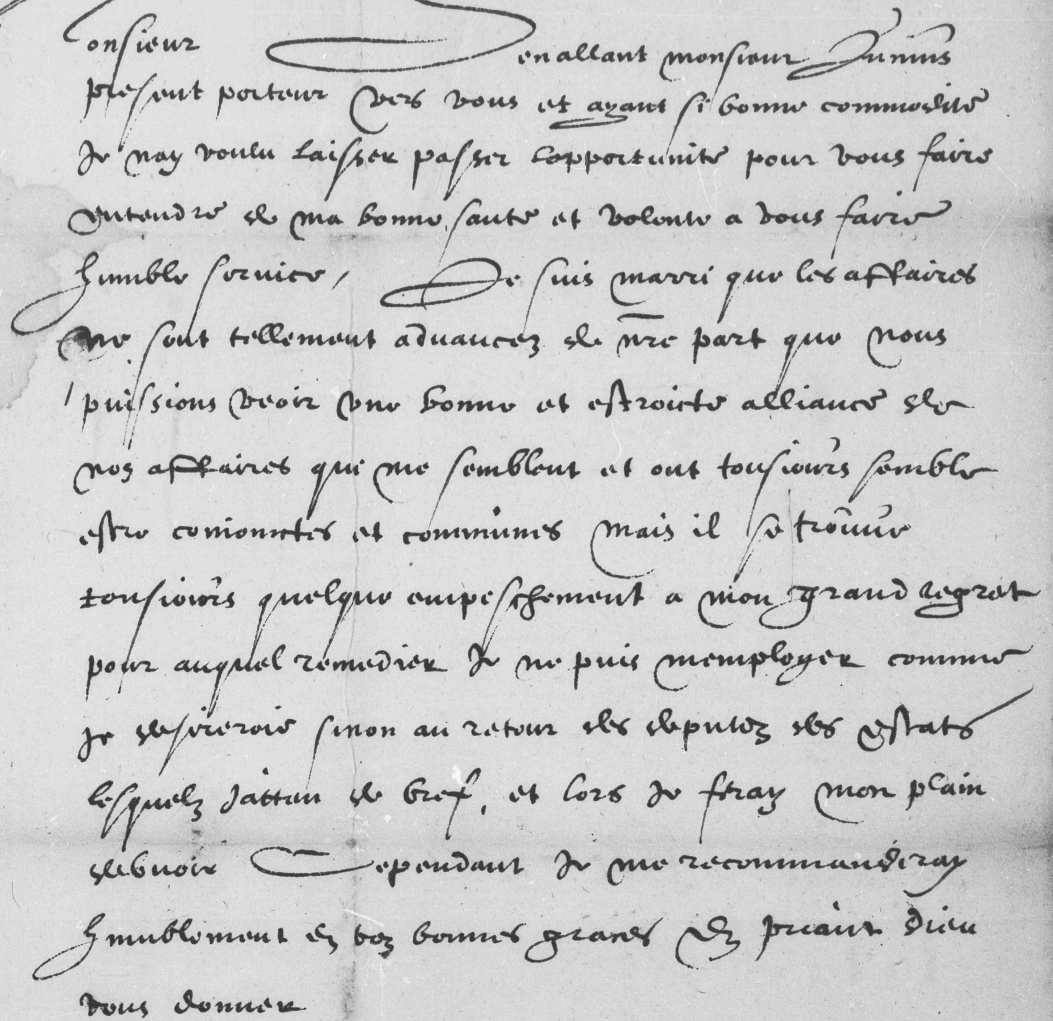 onsieur En allant monsieur Junius
present porteur vers vous et ayant si bonne commodite
Je nay voulu laisser passer lopportunite pour vous faire
entendre de ma bonne sante et volonte a vous faire
humble service, Je suis marri que les affaires
ne sont tellement advancez de nre part que nous
puissions veoir une bonne et estroicte alliance de
noz affaires que me semblent et ont tousiours semble
estre conioinctes et communes mais il se trouve
tousiours quelque empeschement a mon grand regret
pour auquel remedier Je ne puis memployer comme
Je desireroie sinon au retour des deputez des Estats
lesquelz Jatten de bref, et lors Je feray mon plain
debvoir Cependant Je me recommanderay
humblement en voz bonnes graces En priant dieu
vous donner